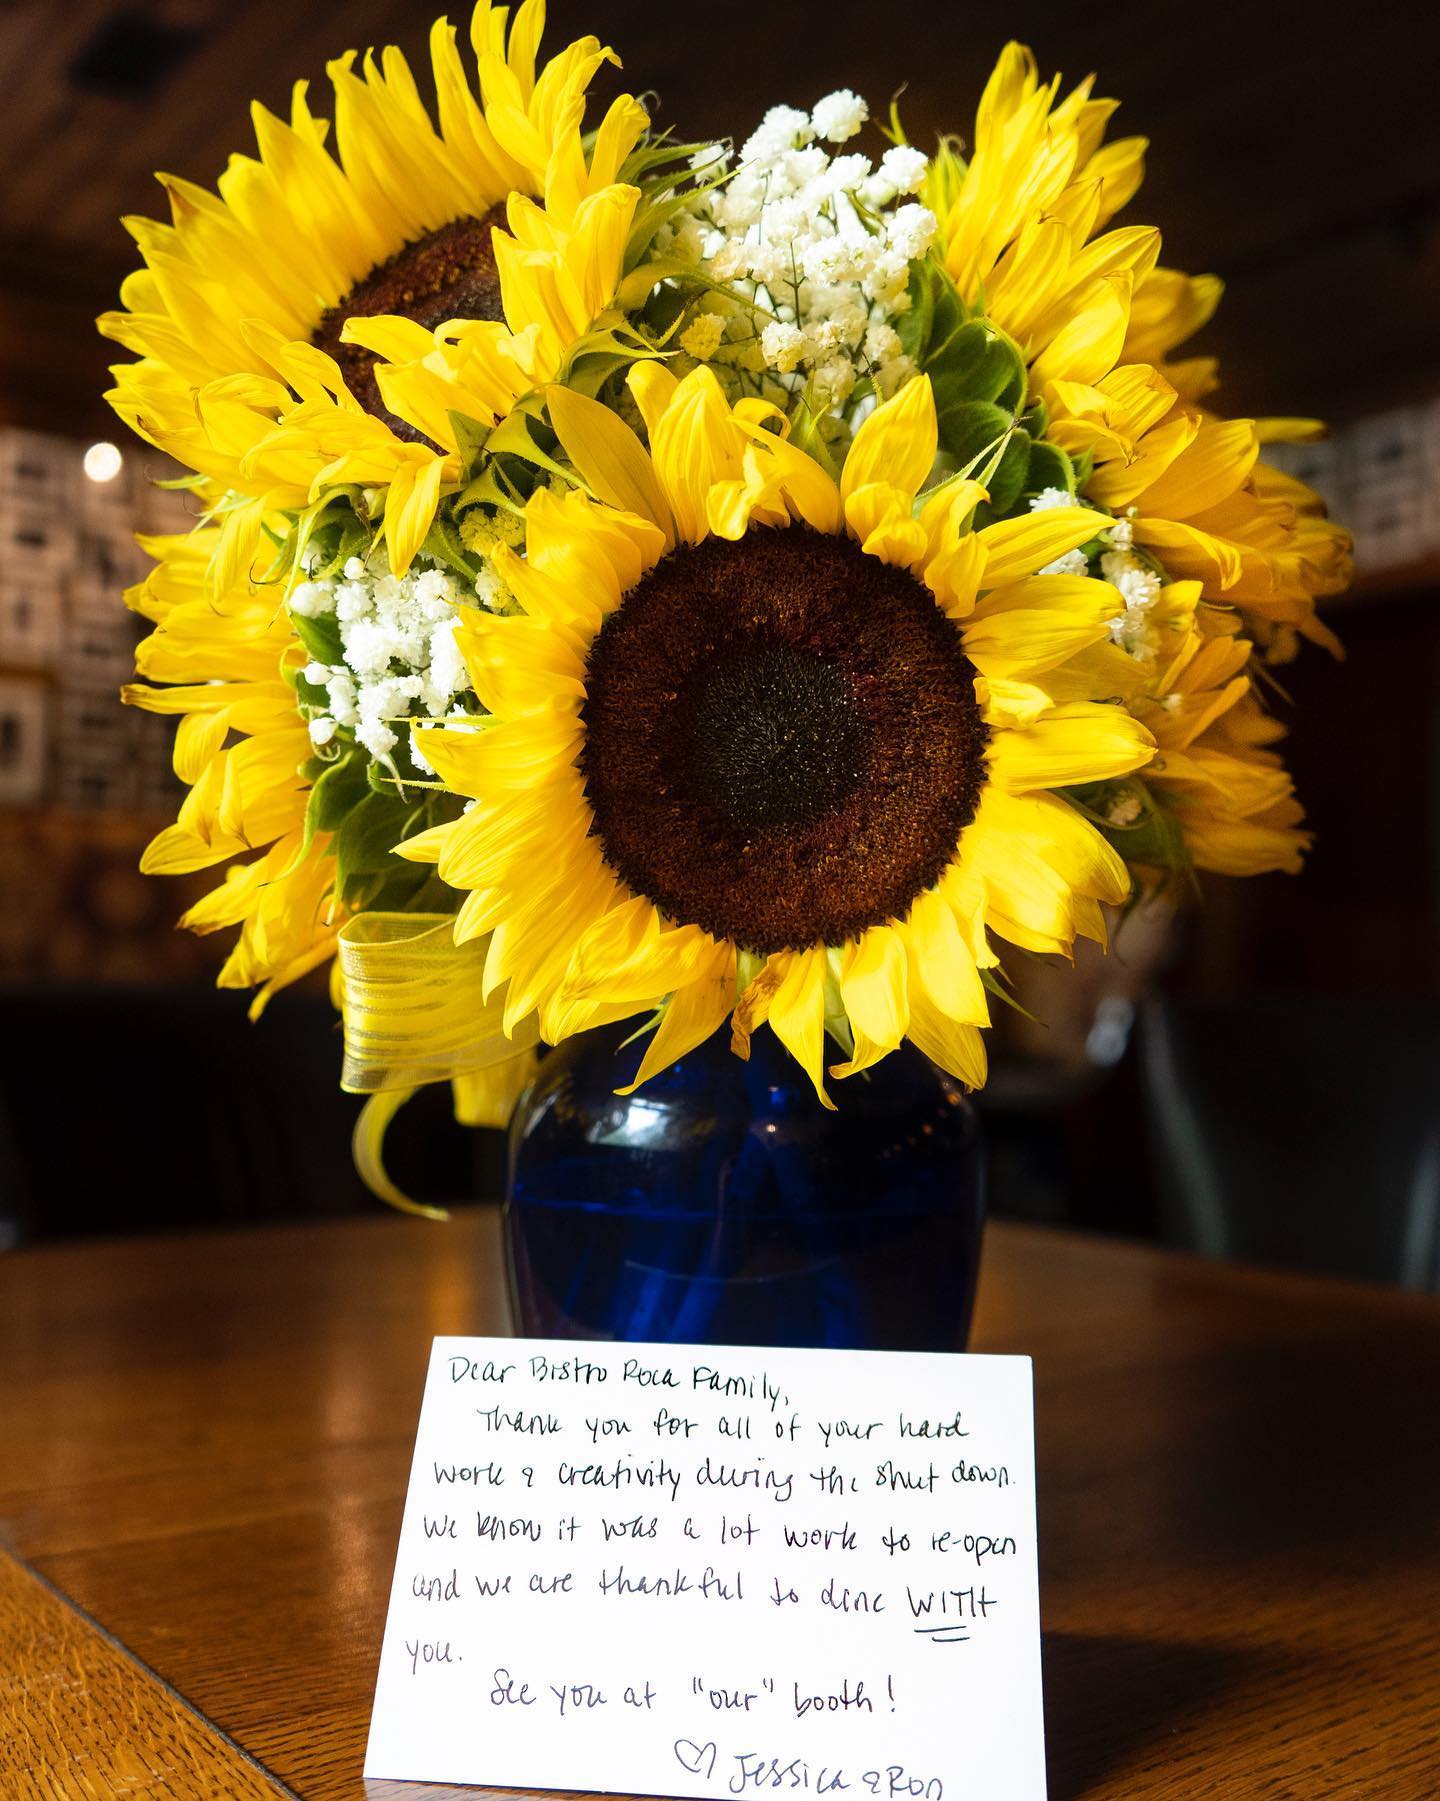 Dear Bistro Roca Family,
Thank you for all of your hard
work & creativity during the shut down.
We know it was a lot work to re-open
and we are thankful to dine WITH
you.
See you at "our" booth!
♡ Jessica & Ron